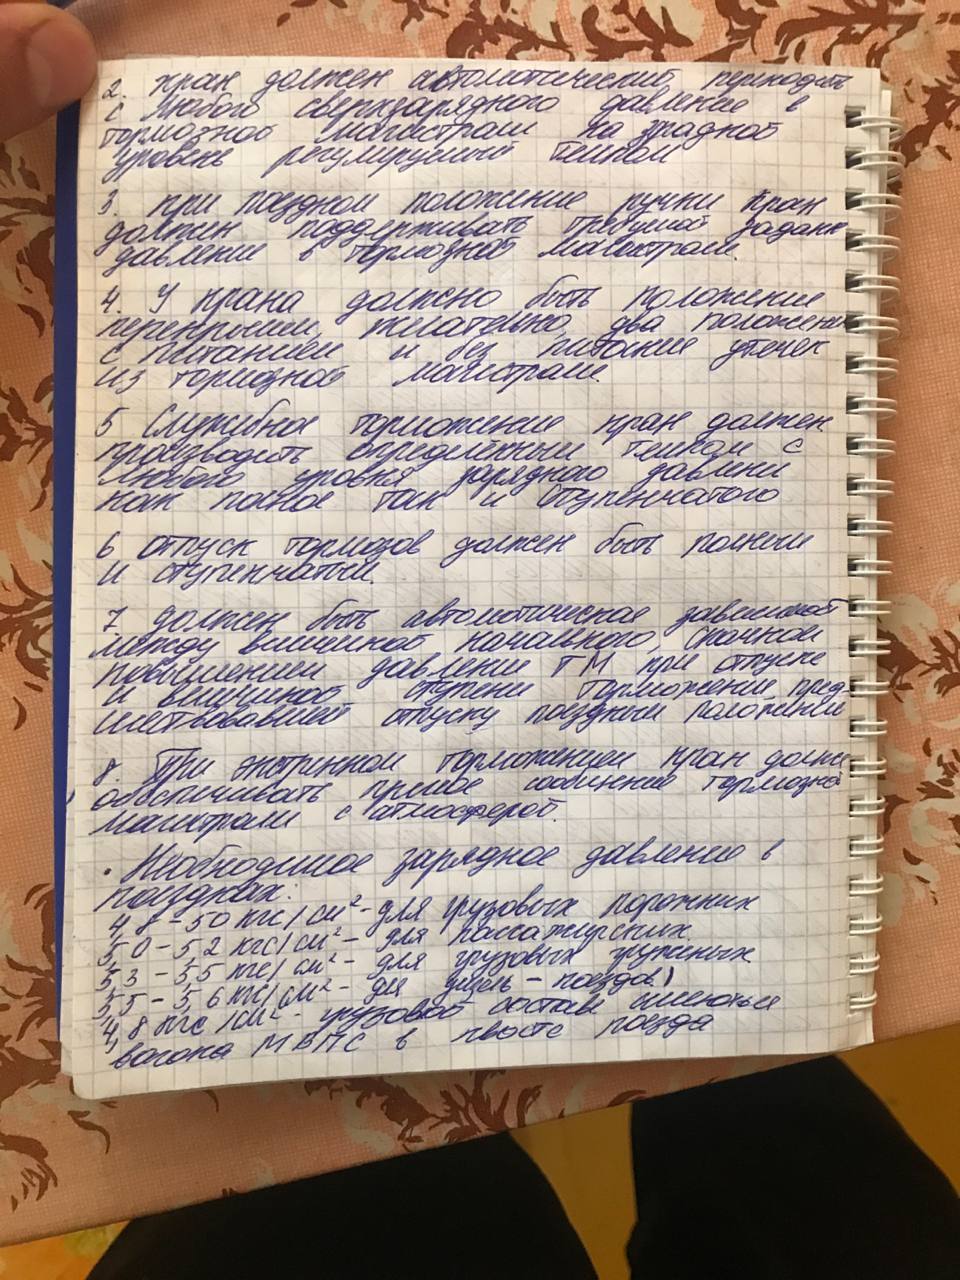 2. Кран должен автоматический переходить
с любого сверхзарядного давление в
тормозной магистрали на зарадной
уровень регулируемый темпом
3. При поездном положение ручки кран
должен поддерживать требуемой задани
давление в тормозной магистрали.
4. У крана должно быть положение
перекрыши, желательно, два положени
с питанием и без питание утечек
из тормозной магистрали.
5 Служебное торможение кран должен
производить определённым темпом с
любого уровня зарядного давлени
как полное так и ступенчатого
6 отпуск тормозов должен быть полным
и ступенчатым.
7 должен быть автоматическая зависимой
между величиной начального, скачной
повышением давление ТМ при отпуске
и величиной ступени торможении пред-
шествовавшей отпуску поездным положении
8. При экстренном торможением кран должн
обеспечивать прямое сообщение тормозно
магистрали с атмосферой.
• Необходимое зарядное давление в
поездках:
4,8 – 50 кгс/см² – для грузовых порожних
5,0 – 5,2 кгс/см² – для пассажирских
5,3 – 5,5 кгс/см² – для грузовых груженых
5,5 – 5,6 кгс/см² – для дизель – поездов)
4,8 кгс/см² – грузовой состав имеються
вагона МВПС в хвосте поезда